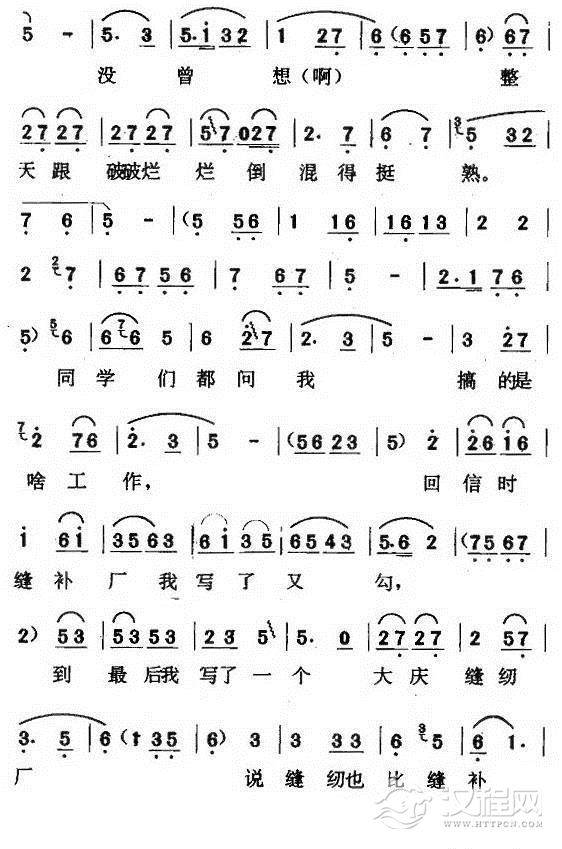 5 - | 5. 3 | 5.i 32 | 1 27 | 6 (6 57 | 6) 67 |
没 曾 想(啊) 整
27 27 | 27 27 | 57 027 | 2. 7 | 6 7 | 5 32 |
天跟 破破烂 烂 倒 混 得 挺 熟。
7 6 | 5 - | (5 56 | 1 16 | 16 13 | 2 2 |
2 7 | 67 56 | 7 67 | 5 - | 2.1 76 |
5) 6 | 6 6 5 | 6 27 | 2. 3 | 5 - | 3 27 |
同 学 们 都 问 我 搞 的是
2 76 | 2. 3 | 5 - | (56 23 | 5) 2 | 26 i6 |
啥 工 作, 回 信 时
i 6i | 35 63 | 6i 35 | 65 43 | 5.6 2 | (75 67 |
缝 补 厂 我 写 了 又 勾,
2) 53 | 53 53 | 23 5 | 5. 0 | 27 27 | 2 57 |
到 最 后我 写了 一 个 大 庆 缝 纫
3. 5 | 6 (1 35 | 6) 3 | 3 33 | 5 5 | 6 1. |
厂 说 缝 纫也 比 缝 补
汉程网
WWW.HTTPCN.COM